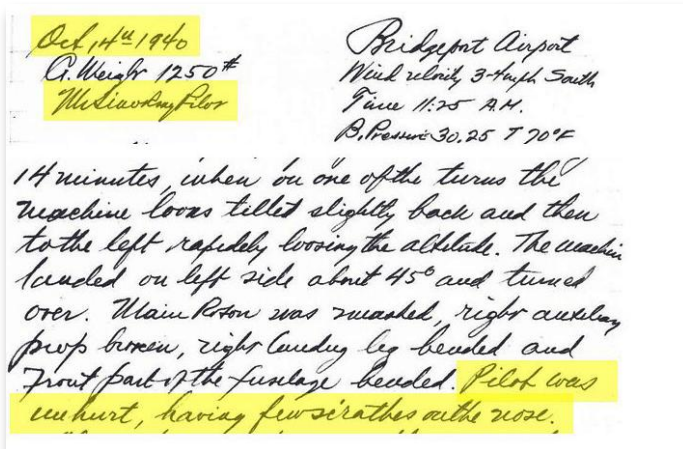 Oct, 14th 1940
G. Weight 1250#
Mr Sikorsky Pilot
Bridgeport Airport
Wind velocity 3-4mph South
Time 11:25 A.M.
B. Pressure 30.25 T 70°F
14 minutes, when on one of the turns the
machine was tilted slightly back and then
to the left rapidely loosing the altitude. The machin
landed on left side about 45° and turned
over. Main Rotor was smashed, right auxiliary
prop broken, right landing leg bended and
Front part of the fuselage bended. Pilot was
unhurt, having few scrathes on the nose.